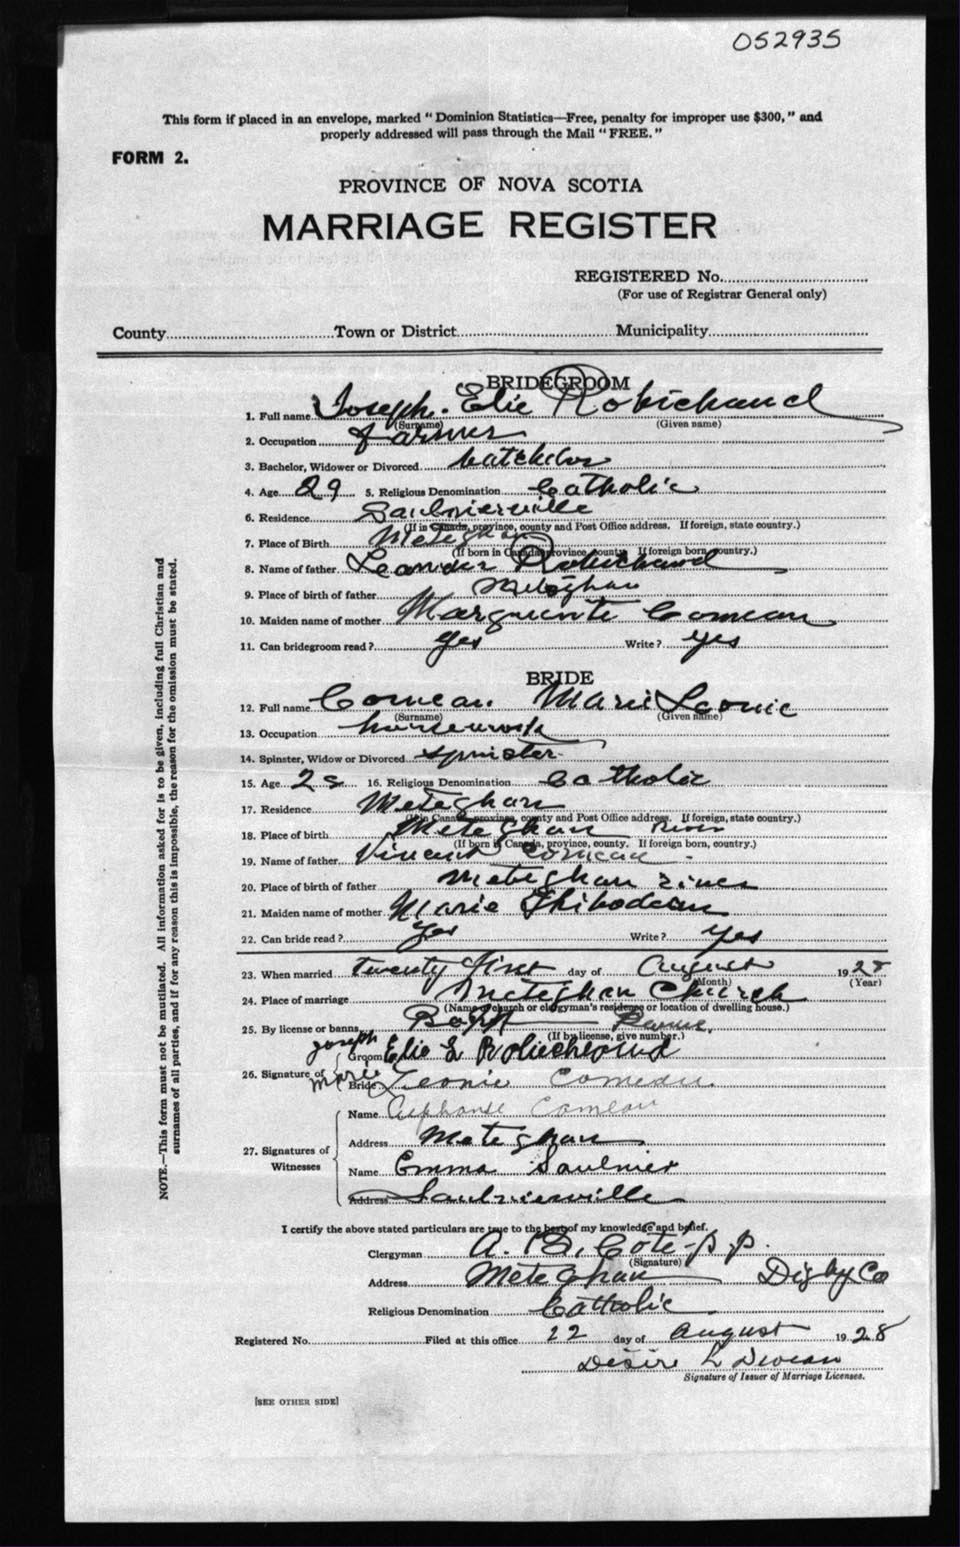 052935
This form if placed in an envelope, marked "Dominion Statistics—Free, penalty for improper use $300," and
properly addressed will pass through the Mail "FREE."
FORM 2.
PROVINCE OF NOVA SCOTIA
MARRIAGE REGISTER
REGISTERED No.
(For use of Registrar General only)
County Town or District Municipality
BRIDEGROOM
1. Full name Joseph. Elie Robichaud
(Surname) (Given name)
2. Occupation farmer
3. Bachelor, Widower or Divorced batchelor
4. Age 29 5. Religious Denomination Catholic
6. Residence Saulnierville
(If in Canada, province, county and Post Office address. If foreign, state country.)
7. Place of Birth Meteghan
(If born in Canada, province, county. If foreign born, country.)
8. Name of father Leander Robichaud
9. Place of birth of father Meteghan
10. Maiden name of mother Marguerite Comeau
11. Can bridegroom read? Yes Write? yes
BRIDE
12. Full name Comeau. Marie Leonie
(Surname) (Given name)
13. Occupation housework
14. Spinster, Widow or Divorced spinster
15. Age 2 16. Religious Denomination Catholic
17. Residence Meteghan
(If in Canada, province, county and Post Office address. If foreign, state country.)
18. Place of birth Meteghan River
(If born in Canada, province, county. If foreign born, country.)
19. Name of father Vincent Comeau
20. Place of birth of father Meteghan river
21. Maiden name of mother Marie Thibodeau
22. Can bride read? Yes Write? yes
23. When married twenty first day of August 1928
(Month) (Year)
24. Place of marriage Meteghan Church
(Name of church or clergyman's residence or location of dwelling house.)
25. By license or banns Banns.
(If by license, give number.)
Joseph
Groom Elie L Robicheaud
26. Signature of Marie
Bride Leonie Comeau.
Name Alphonse Comeau
Address Meteghan
27. Signatures of
Witnesses
Name Emma Saulnier
Address Saulnierville
I certify the above stated particulars are true to the best of my knowledge and belief.
Clergyman A. B. Cote p.p.
(Signature)
Address Meteghan Digby Co
Religious Denomination Catholic
Registered No. Filed at this office 22 day of August 1928
Desire L Deveau
Signature of Issuer of Marriage Licenses.
[SEE OTHER SIDE]
NOTE.—This form must not be mutilated. All information asked for is to be given, including full Christian and
surnames of all parties, and if for any reason this is impossible, the reason for the omission must be stated.